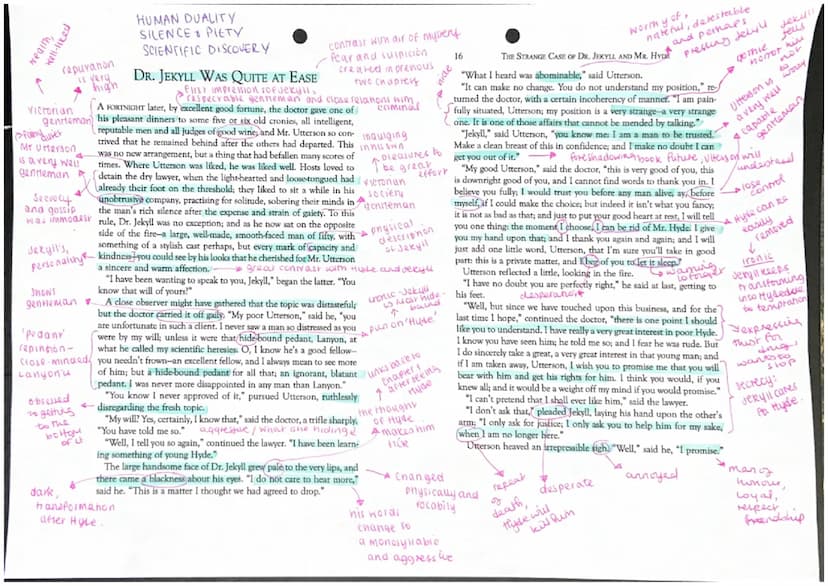 HUMAN DUALITY
SILENCE & PIETY
SCIENTIFIC DISCOVERY
DR. JEKYLL WAS QUITE AT EASE
A FORTNIGHT later, by excellent good fortune, the doctor gave one of
his pleasant dinners to some five or six old cronies, all intelligent,
reputable men and all judges of good wine; and Mr. Utterson so con-
trived that he remained behind after the others had departed. This
was no new arrangement, but a thing that had befallen many scores of
times. Where Utterson was liked, he was liked well. Hosts loved to
detain the dry lawyer, when the light-hearted and loose-tongued had
already their foot on the threshold; they liked to sit a while in his
unobtrusive company, practising for solitude, sobering their minds in
the man's rich silence after the expense and strain of gaiety. To this
rule, Dr. Jekyll was no exception; and as he now sat on the opposite
side of the fire—a large, well-made, smooth-faced man of fifty, with
something of a stylish cast perhaps, but every mark of capacity and
kindness—you could see by his looks that he cherished for Mr. Utterson
a sincere and warm affection.
"I have been wanting to speak to you, Jekyll," began the latter. "You
know that will of yours?"
A close observer might have gathered that the topic was distasteful;
but the doctor carried it off gaily. "My poor Utterson," said he, "you
are unfortunate in such a client. I never saw a man so distressed as you
were by my will; unless it were that hide-bound pedant, Lanyon, at
what he called my scientific heresies. O, I know he's a good fellow—
you needn't frown—an excellent fellow, and I always mean to see more
of him; but a hide-bound pedant for all that; an ignorant, blatant
pedant. I was never more disappointed in any man than Lanyon."
"You know I never approved of it," pursued Utterson, ruthlessly
disregarding the fresh topic.
"My will? Yes, certainly, I know that," said the doctor, a trifle sharply.
"You have told me so."
"Well, I tell you so again," continued the lawyer. "I have been learn-
ing something of young Hyde."
The large handsome face of Dr. Jekyll grew pale to the very lips, and
there came a blackness about his eyes. "I do not care to hear more,"
said he. "This is a matter I thought we had agreed to drop."
wealth,
well-liked
reputation
is very
high
Victorian
gentleman
Mr Utterson
is a very well
gentleman
Secrecy
and gossip
was immoral
Jekyll's
personality
'pedant'
close-minded
Lanyon
obsessed
to getting
to the
bottom
of it
dark,
transformation
after Hyde.
contrast with air of mystery
fear and suspicion
created in previous
two chapters
First impression of Jekyll,
respectable gentleman
criminal
indulging
in his own
pleasures to
be great
effort
Victorian
society
gentleman
physical
description
of Jekyll
great contrast with Hyde and Jekyll
pun on 'Hyde'
the thought
of Hyde
makes him
changed
physically and
his words
change to
a monosyllable
and aggressive
16
THE STRANGE CASE OF DR. JEKYLL AND MR. HYDE
"What I heard was abominable," said Utterson.
"It can make no change. You do not understand my position," re-
turned the doctor, with a certain incoherency of manner. "I am pain-
fully situated, Utterson; my position is a very strange—a very strange
one. It is one of those affairs that cannot be mended by talking."
"Jekyll," said Utterson, "you know me: I am a man to be trusted.
Make a clean breast of this in confidence; and I make no doubt I can
get you out of it."
"My good Utterson," said the doctor, "this is very good of you, this
is downright good of you, and I cannot find words to thank you in. I
believe you fully; I would trust you before any man alive, ay, before
myself, if I could make the choice; but indeed it isn't what you fancy;
it is not as bad as that; and just to put your good heart at rest, I will tell
you one thing: the moment I choose, I can be rid of Mr. Hyde. I give
you my hand upon that; and I thank you again and again; and I will
just add one little word, Utterson, that I'm sure you'll take in good
part: this is a private matter, and I beg of you to let it sleep."
Utterson reflected a little, looking in the fire.
"I have no doubt you are perfectly right," he said at last, getting to
his feet.
"Well, but since we have touched upon this business, and for the
last time I hope," continued the doctor, "there is one point I should
like you to understand. I have really a very great interest in poor Hyde.
I know you have seen him; he told me so; and I fear he was rude. But
I do sincerely take a great, a very great interest in that young man; and
if I am taken away, Utterson, I wish you to promise me that you will
bear with him and get his rights for him. I think you would, if you
knew all; and it would be a weight off my mind if you would promise."
"I can't pretend that I shall ever like him," said the lawyer.
"I don't ask that," pleaded Jekyll, laying his hand upon the other's
arm; "I only ask for justice; I only ask you to help him for my sake,
when I am no longer here."
Utterson heaved an irrepressible sigh. "Well," said he, "I promise."
worthy of,
hateful, detestable
and perhaps
Utterson is
a very well
capable
gentleman
understand
lose
control
Hyde can be
easily
removed
ironic
Jekyll keeps
transforming
into Hyde due
to temptation
desperate
expressing
secrecy:
Jekyll cares
for Hyde.
repeat
of
death,
Hyde will
desperate
annoyed
man of
honour,
loyal,
respect
friendship